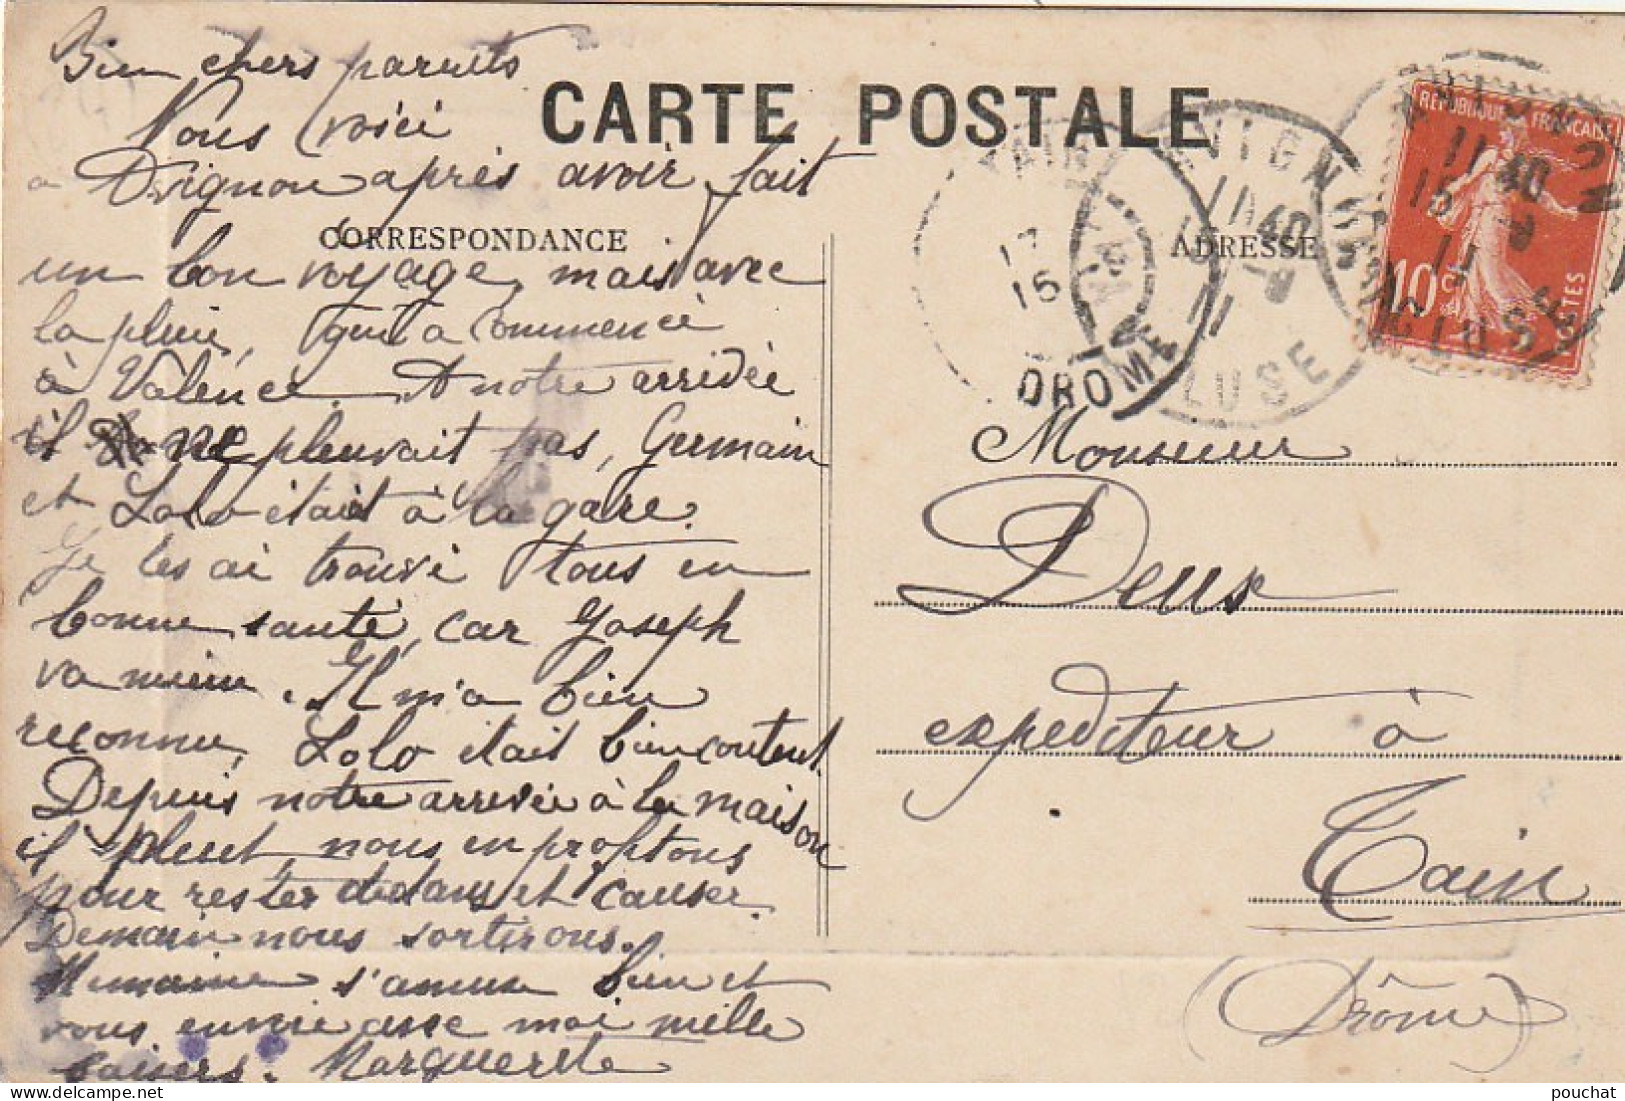 Bien chers parents
Nous voici
a Avignon après avoir fait
CARTE POSTALE
CORRESPONDANCE
un bon voyage, mais avec
la pluie, qui a commencé
à Valence. A notre arrivée
il ne pleuvait pas, Germain
et Lolo était à la gare.
Je les ai trouvé tous en
bonne santé, car Joseph
va mieux. Il m'a bien
reconnu, Lolo était bien content
Depuis notre arrivée à la maison
il pleut, nous en profitons
pour rester dedans et causer.
Demain nous sortirons.
s'amuse bien et
vous envoie avec moi mille
baisers. Marguerite
ADRESSE
Monsieur
Deux
expediteur à
Tain
(Drôme)
REPUBLIQUE FRANÇAISE
10 C
POSTES
TAIN
17
15
DROME
AVIGNON
11 40
15 -9
11
VAUCLUSE
AVIGNON
11 40
15 -9
11
VAUCLUSE
pouchat